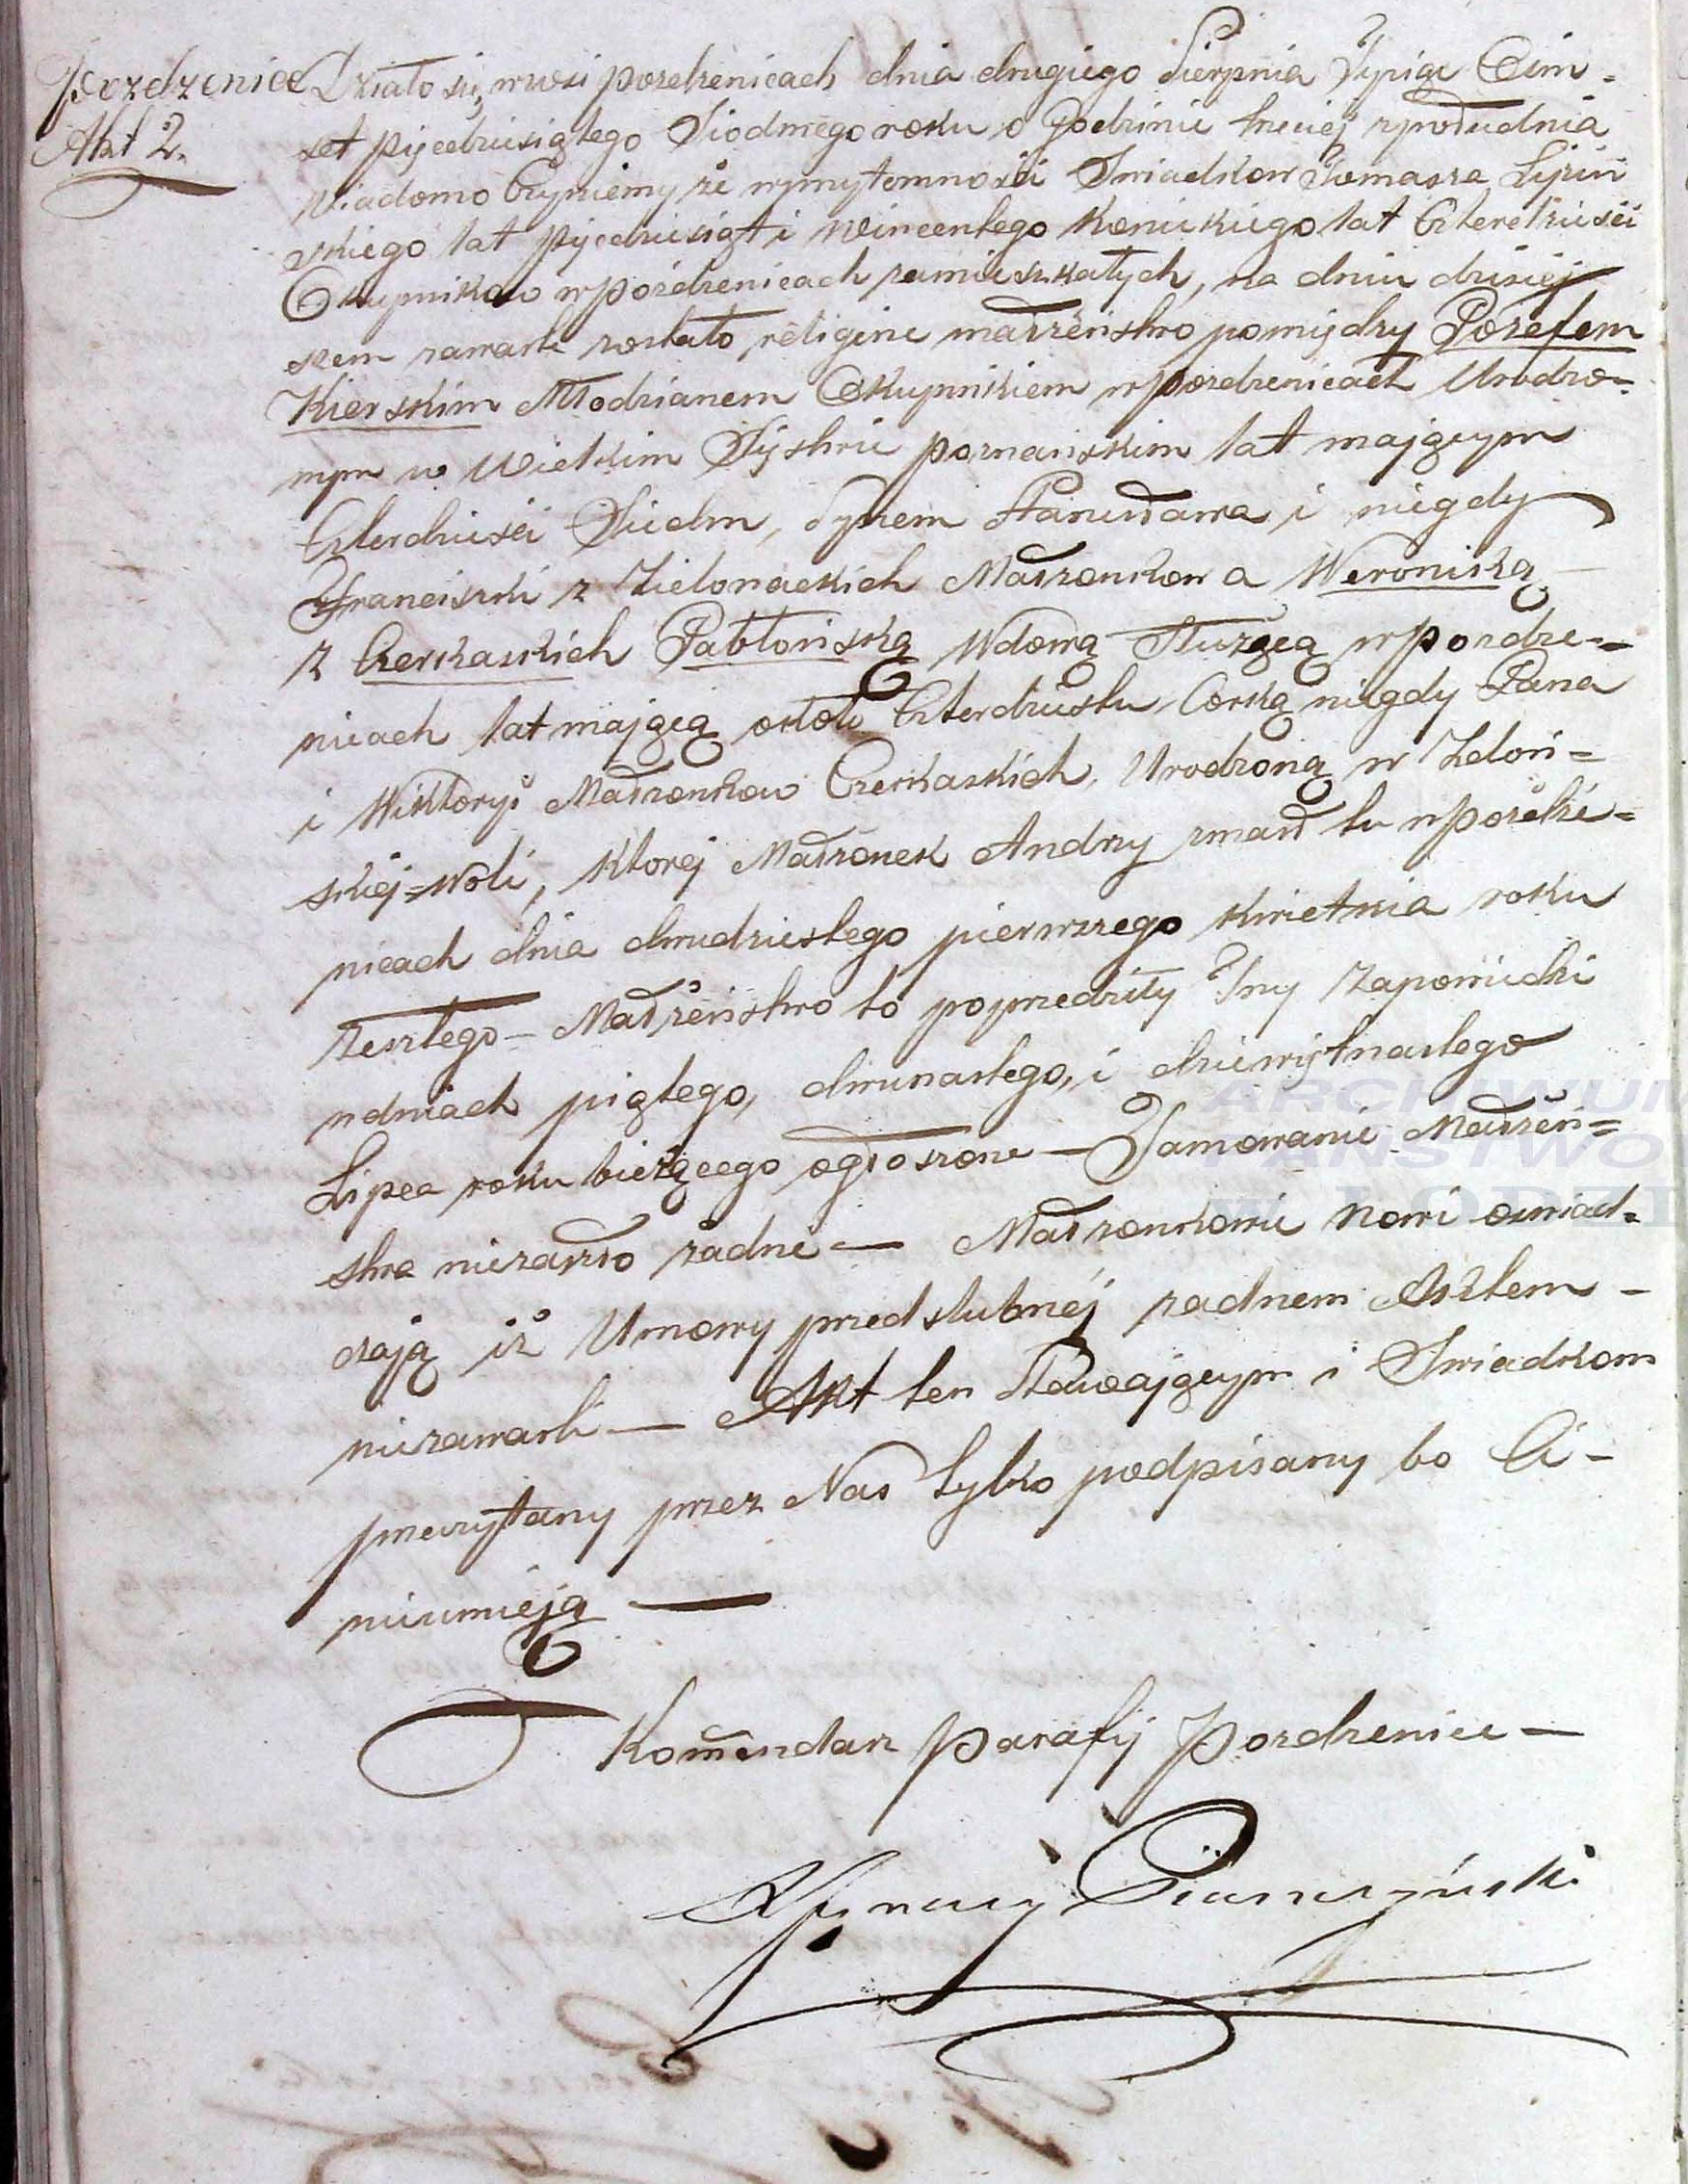 Pozdzenice
Akt 2.
Działo się, w wsi pozdzenicach dnia drugiego Sierpnia Tysiąc Ośm=
set pięcdziesiątego Siodmego roku o godzinie trzeciej zpołudnia
Wiadomo Czyniemy że wprzytomności Swiadkow Tomasza Lipiń
skiego lat pięcdziesiąt i Wincentego Konickiego lat Czterdzieści
Okupnikow wpozdzenicach zamieszkałych, na dniu dzisiej
szem zawarte zostało religine małżeństwo pomiędzy Józefem
Kierskim Młodzianem Okupnikiem wpozdzenicach Urodzo=
nym w Wielkim Xięstwie poznańskim lat mającym
Czterdzieści Siedm, Synem Stanisława i niegdy
Franciszki z Zielonackich Małzonkow a Weroniką
z Czerkaskich Jabłońską Wdową Służącą wpozdze=
nicach lat mającą około Czterdziestu, Corką niegdy Jana
i Wiktoryi Małzonkow Czerkaskich, Urodzoną w Zdoń=
skiej=woli, ktorej Małżonek Andrzy zmarł tu wpozdze=
nicach dnia dwudziestego pierwszego kwietnia roku
zeszłego — Małżeństwo to poprzedziły Trzy Zapowiedzi
wdniach piątego, dwunastego, i dziewiętnastego
Lipca roku bieżącego ogłoszone — Tamowanie Małżeń=
stwa niezaszło żadne — Małzonkowie Nowi oswiad=
czają iż Umowy przedslubnéj zadnem Aktem –
niezawarli — Akt ten Stawającym i Swiadkom
przeczytany przez Nas tylko podpisany bo Ci –
nieumieją —
Komendarz Parafij Pozdzenice —